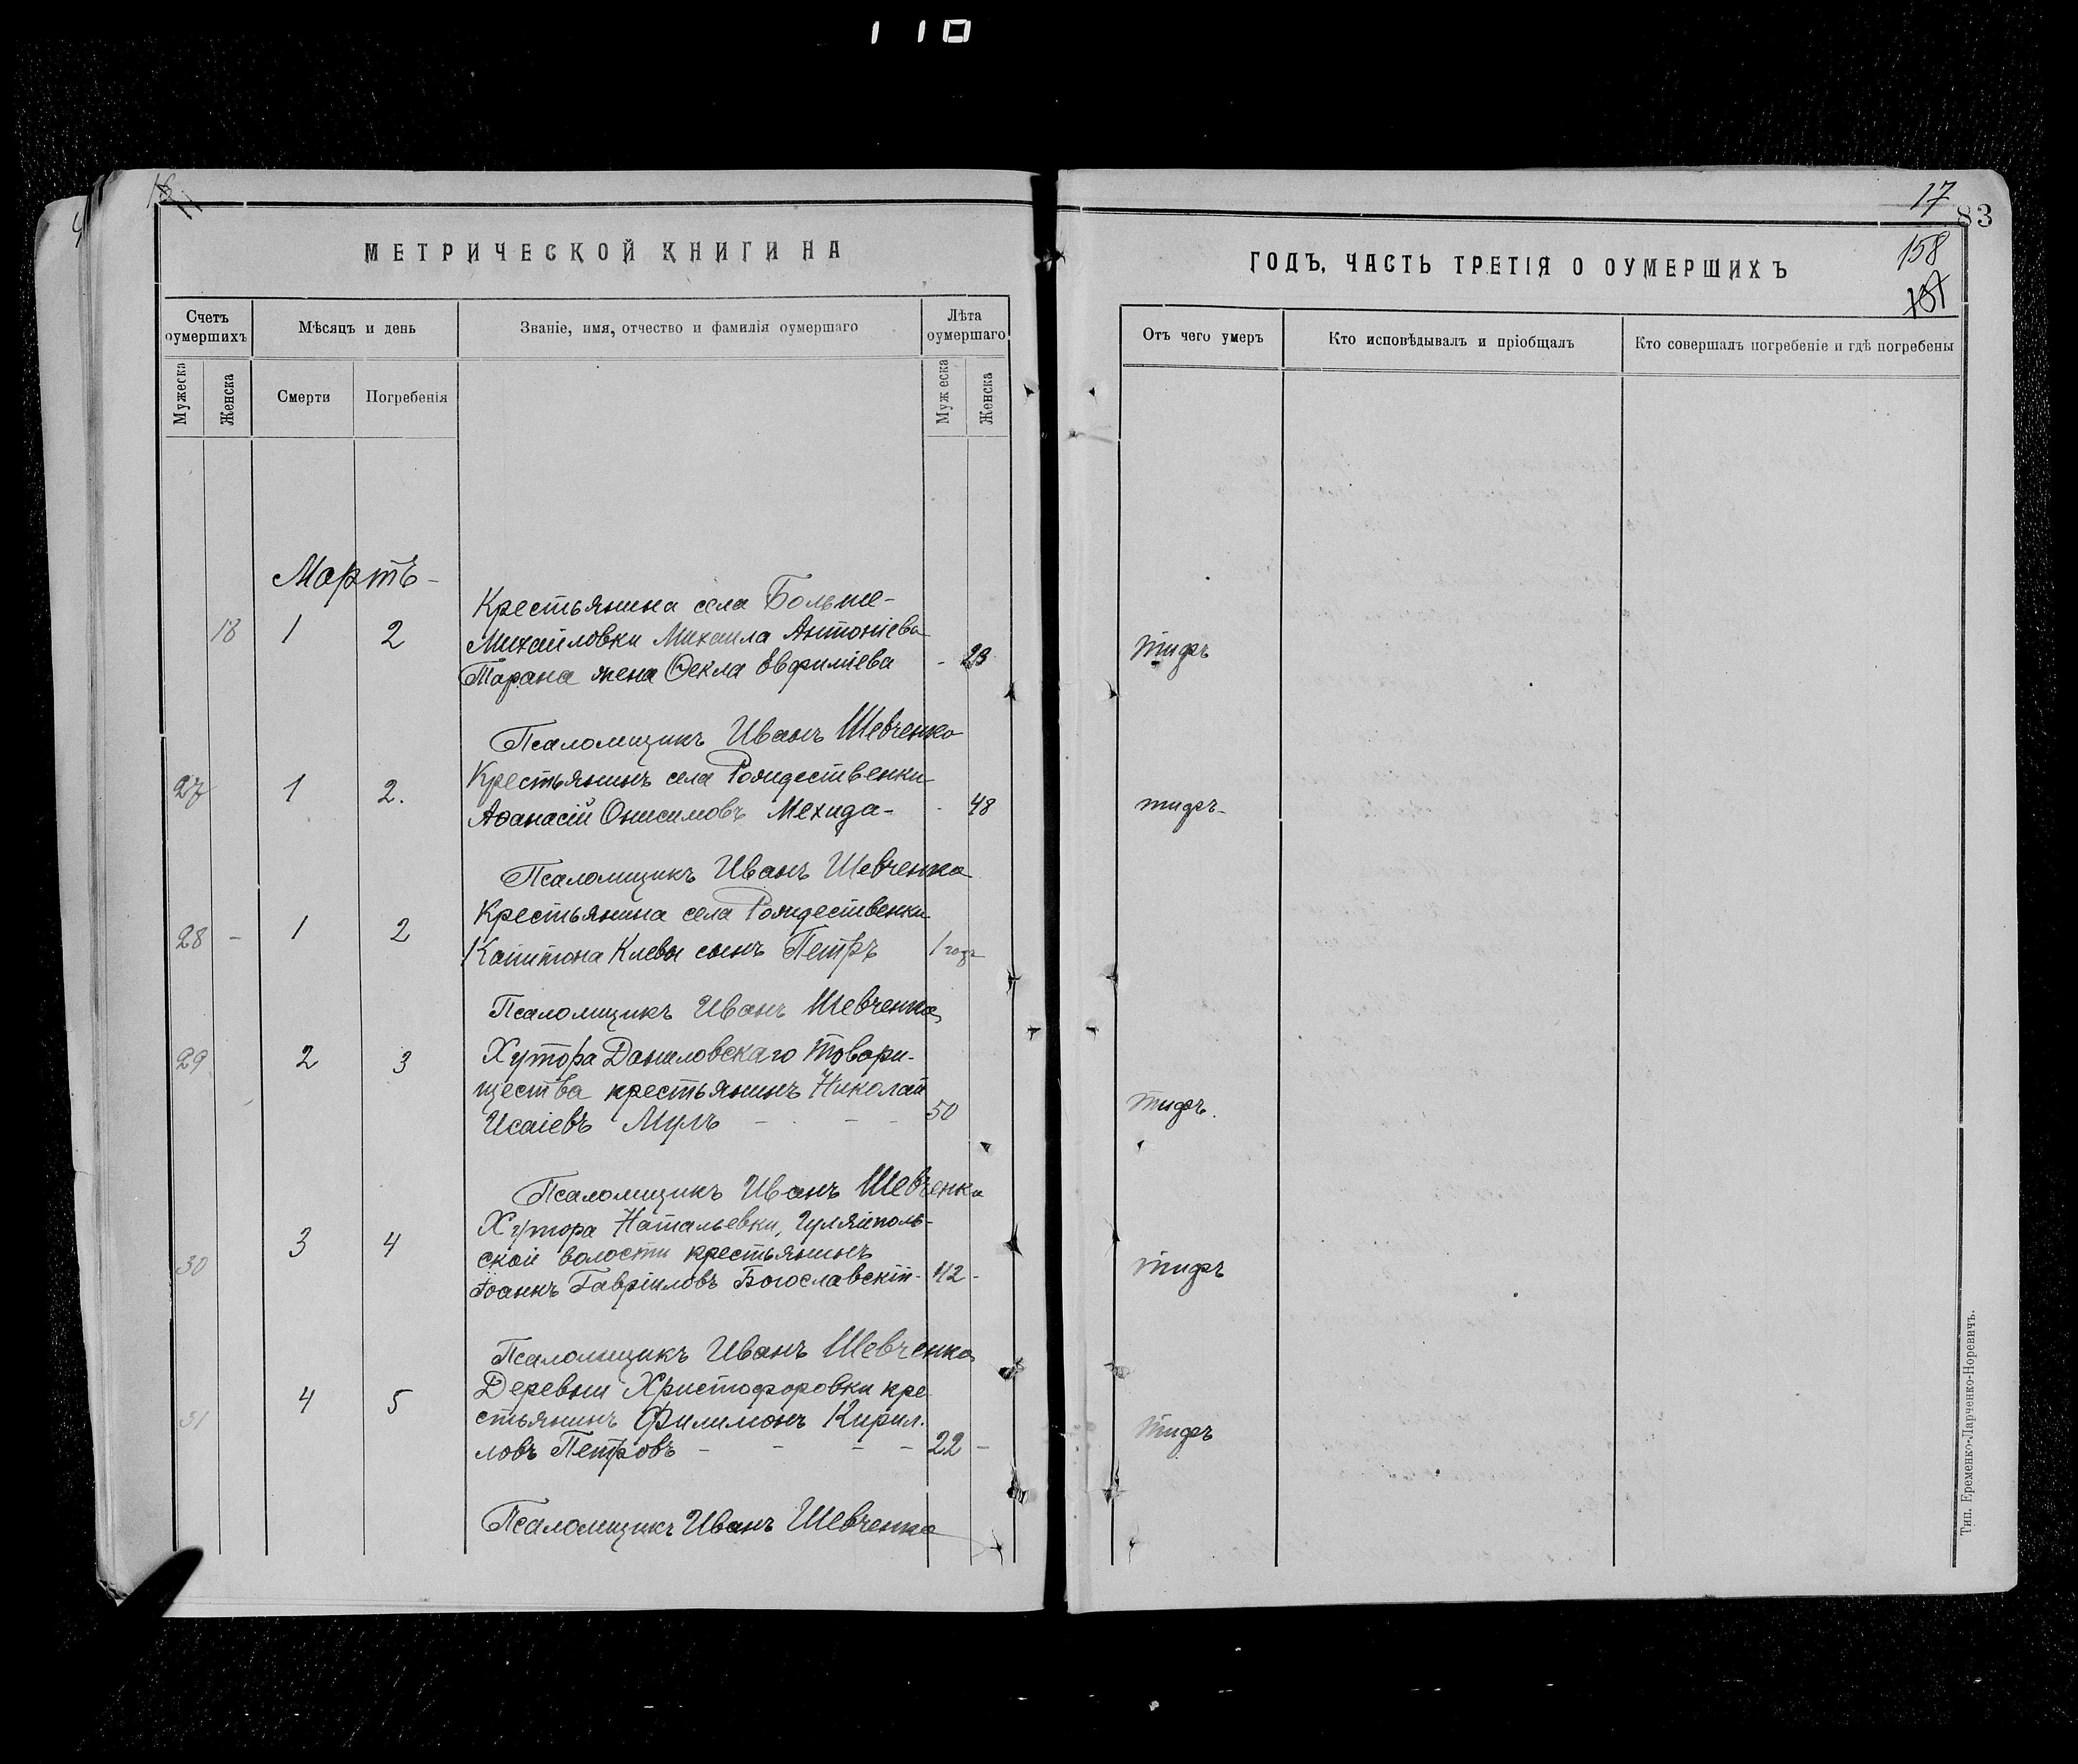 110
17
83
158
МЕТРИЧЕСКОЙ КНИГИ НА
ГОДЪ, ЧАСТЬ ТРЕТІЯ О ОУМЕРШИХЪ
Счетъ оумершихъ
Мѣсяцъ и день
Званіе, имя, отчество и фамилія оумершаго
Лѣта оумершаго
Отъ чего умеръ
Кто исповѣдывалъ и пріобщалъ
Кто совершалъ погребеніе и гдѣ погребены
Мужеска
Женска
Смерти
Погребенія
Мужеска
Женска
Мартъ -
Крестьянина села Больше-
18 1 2 Михайловки Михаила Антоніева
Тарана жена Ѳекла Евфиміева - 23 тифъ
Псаломщикъ Иванъ Шевченко
27 1 2. Крестьянинъ села Рождественки
Аѳанасій Онисимовъ Мехида- - 48 тифъ-
Псаломщикъ Иванъ Шевченко
Крестьянина села Рождественки
28 - 1 2 Капитона Клевы сынъ Петръ 1 годъ
Псаломщикъ Иванъ Шевченко
29 2 3 Хутора Даниловскаго Товари-
щества крестьянинъ Николай
Исаіевъ Мулъ - - - 50 тифъ.
Псаломщикъ Иванъ Шевченко
Хутора Натальевки, Гуляйполь-
30 3 4 ской волости крестьянинъ
Іоаннъ Гавріиловъ Богославскій- 42 - тифъ
Псаломщикъ Иванъ Шевченко
Деревни Христофоровки кре
31 4 5 стьянинъ Филимонъ Кирил.
ловъ Петровъ - - - - 22 - тифъ
Псаломщикъ Иванъ Шевченко
Тип. Еременко-Ларченко-Норевичъ.